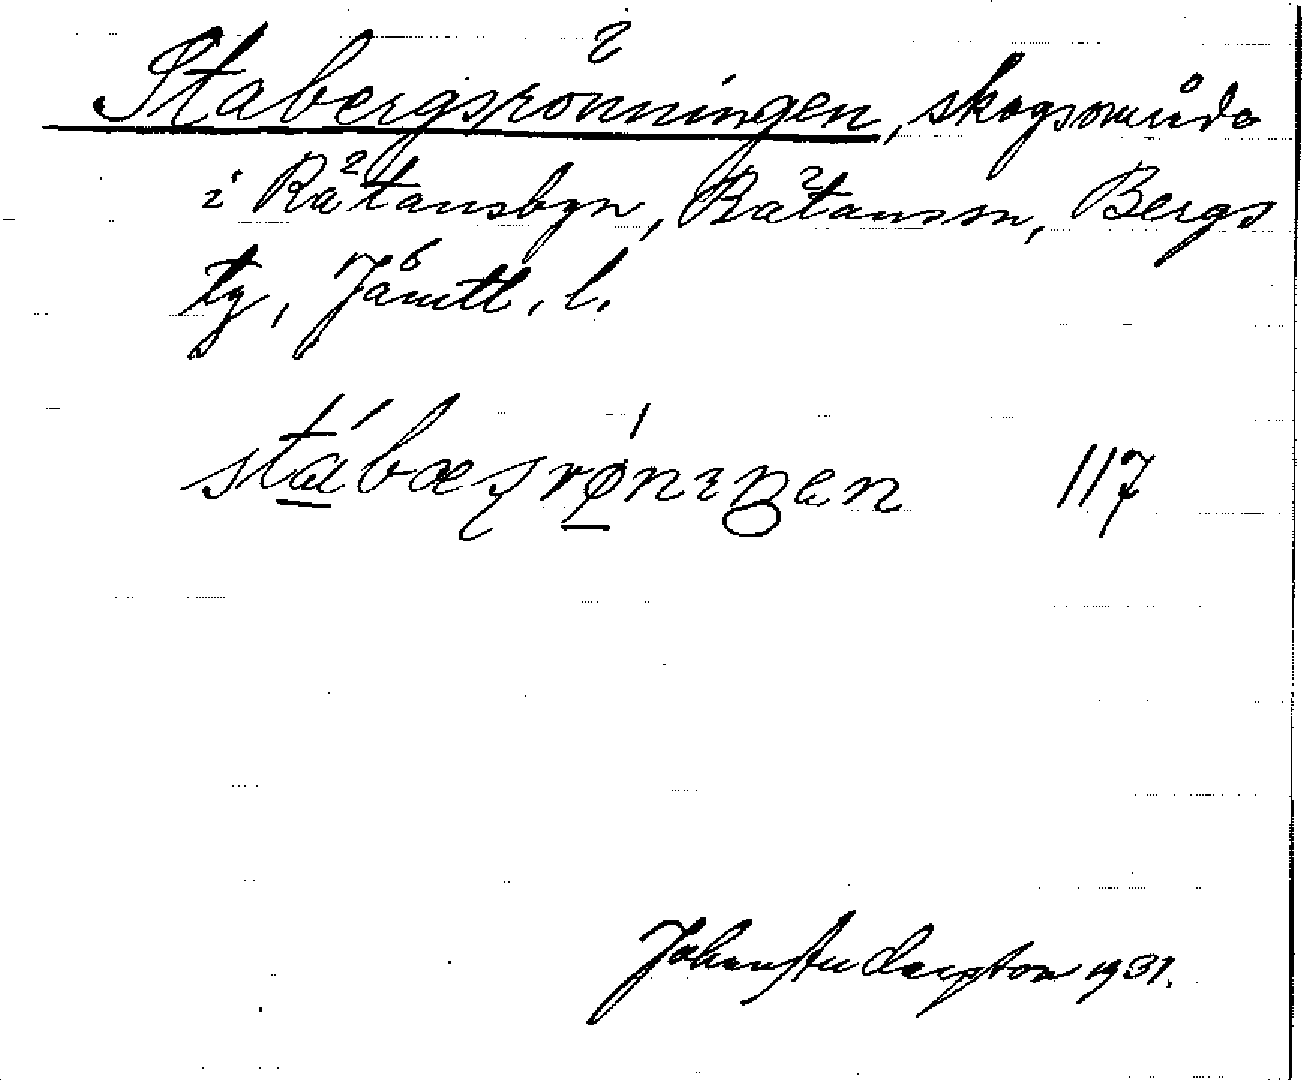 Stabergsrönningen, skogsområde
i Rätansbyn, Rätans sn, Bergs
tg, Jämtl. l.
stábæʂrǿ̱niŋen 117
Johan Andersson 1931.